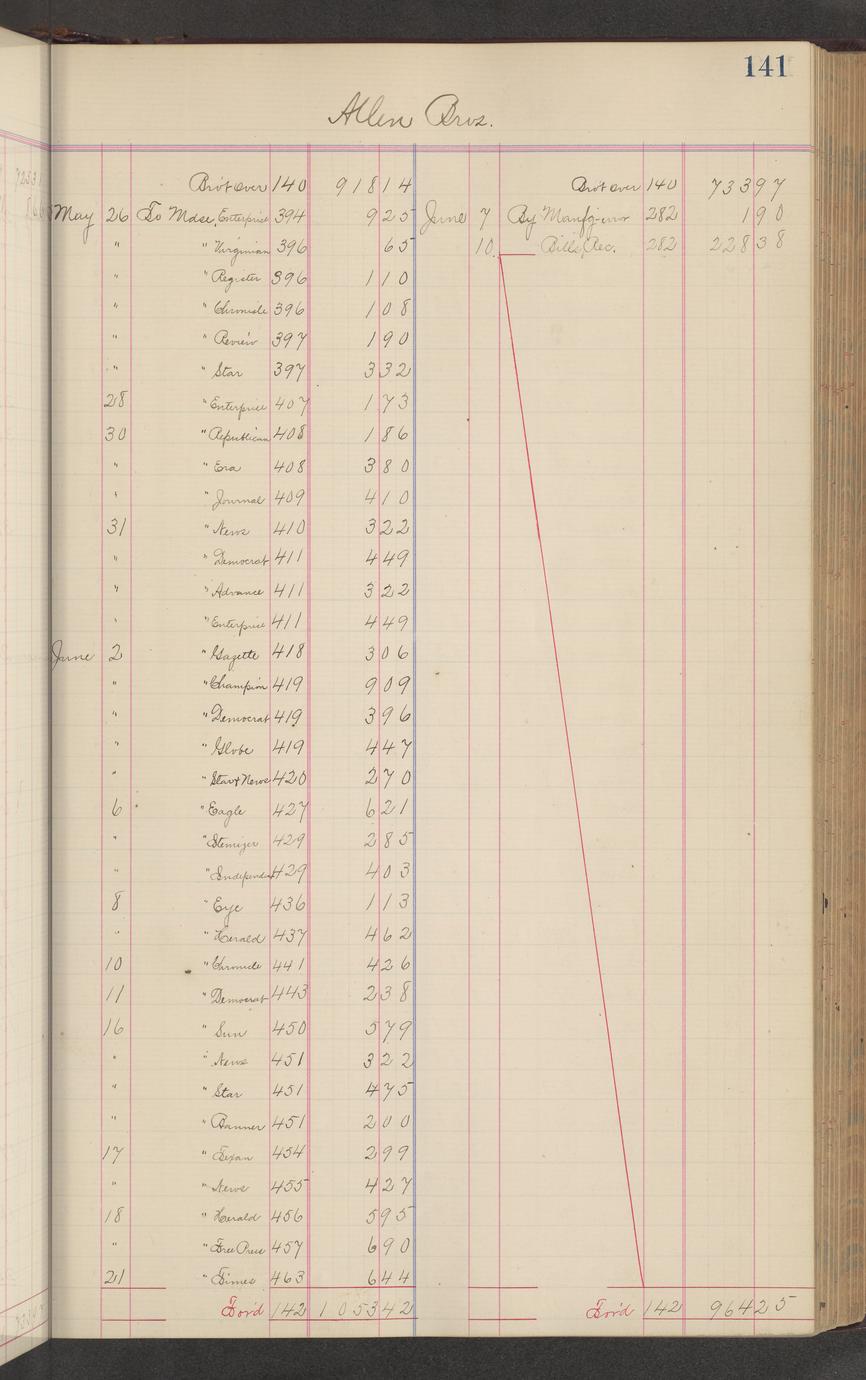 141
Allen Bros.
Bro't over 140 918 14 Bro't over 140 733 97
May 26 To Mdse, Enterprise 394 9 25 June 7 By Manfg error 282 1 90
" " Virginian 396 65 10 Bills Rec. 282 228 38
" " Register 396 1 10
" " Chronicle 396 1 08
" " Review 397 1 90
" " Star 397 3 32
28 " Enterprise 407 1 73
30 " Republican 408 1 86
" " Era 408 3 80
" " Journal 409 4 10
31 " News 410 3 22
" " Democrat 411 4 49
" " Advance 411 3 22
" " Enterprise 411 4 49
June 2 " Gazette 418 3 06
" " Champion 419 9 09
" " Democrat 419 3 96
" " Globe 419 4 47
" " Star & News 420 2 70
6 " Eagle 427 6 21
" " Itemizer 429 2 85
" " Independent 429 4 03
8 " Eye 436 1 13
" " Herald 437 4 62
10 " Chronicle 441 4 26
11 " Democrat 443 2 38
16 " Sun 450 5 79
" " News 451 3 22
" " Star 451 4 75
" " Banner 451 2 00
17 " Texan 454 2 99
" " News 455 4 27
18 " Herald 456 5 95
" " Free Press 457 6 90
21 " Times 463 6 44
For'd 142 1053 42 For'd 142 964 25